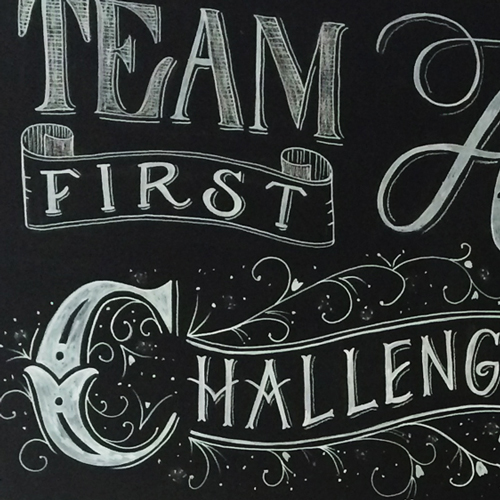 TEAM
FIRST
CHALLENG